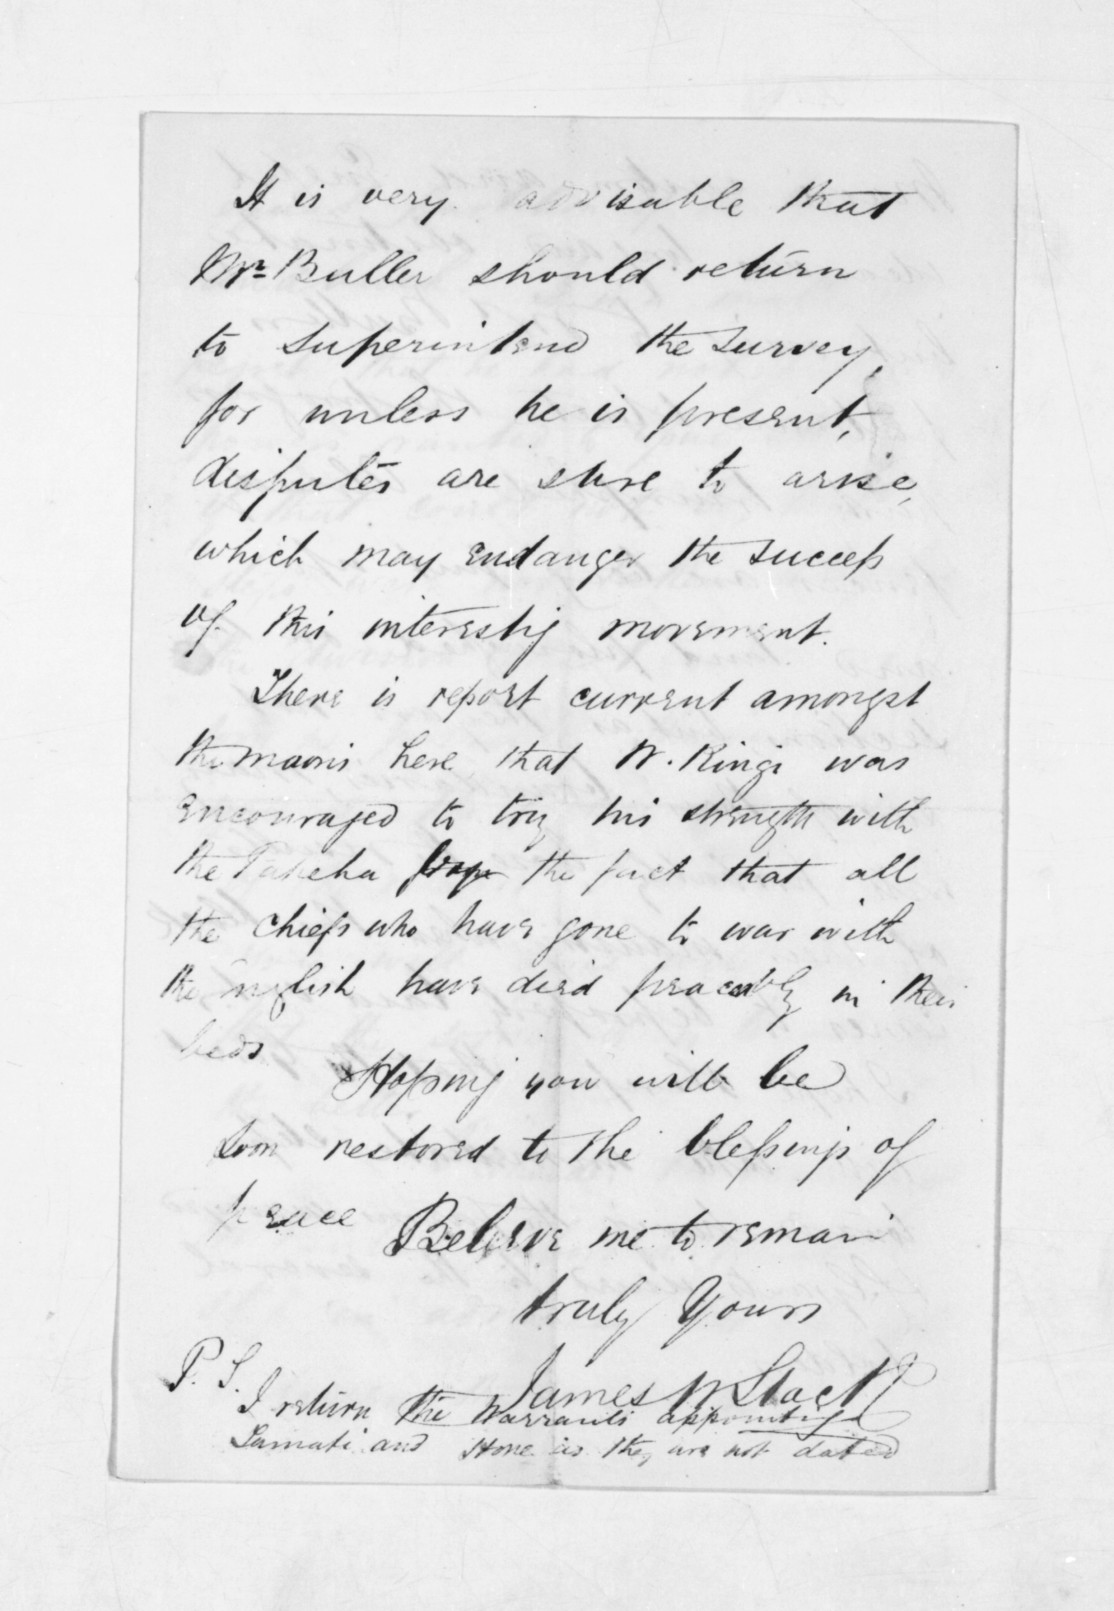 It is very advisable that
Mr Buller should return
to superintend the survey,
for unless he is present,
disputes are sure to arise,
which may endanger the success
of this interestig movement.
There is report current amongst
the maoris here that W. Kingi was
encouraged to try his strength with
the Pakeha from the fact that all
the chiefs who have gone to war with
the English have died peaceably in their
beds
Hoping you will be
soon restored to the blessings of
peace Believe me to remain
truly Yours
James W Stack
P. S.
I return the Warrants appointing
Tamati and Hone as they are not dated